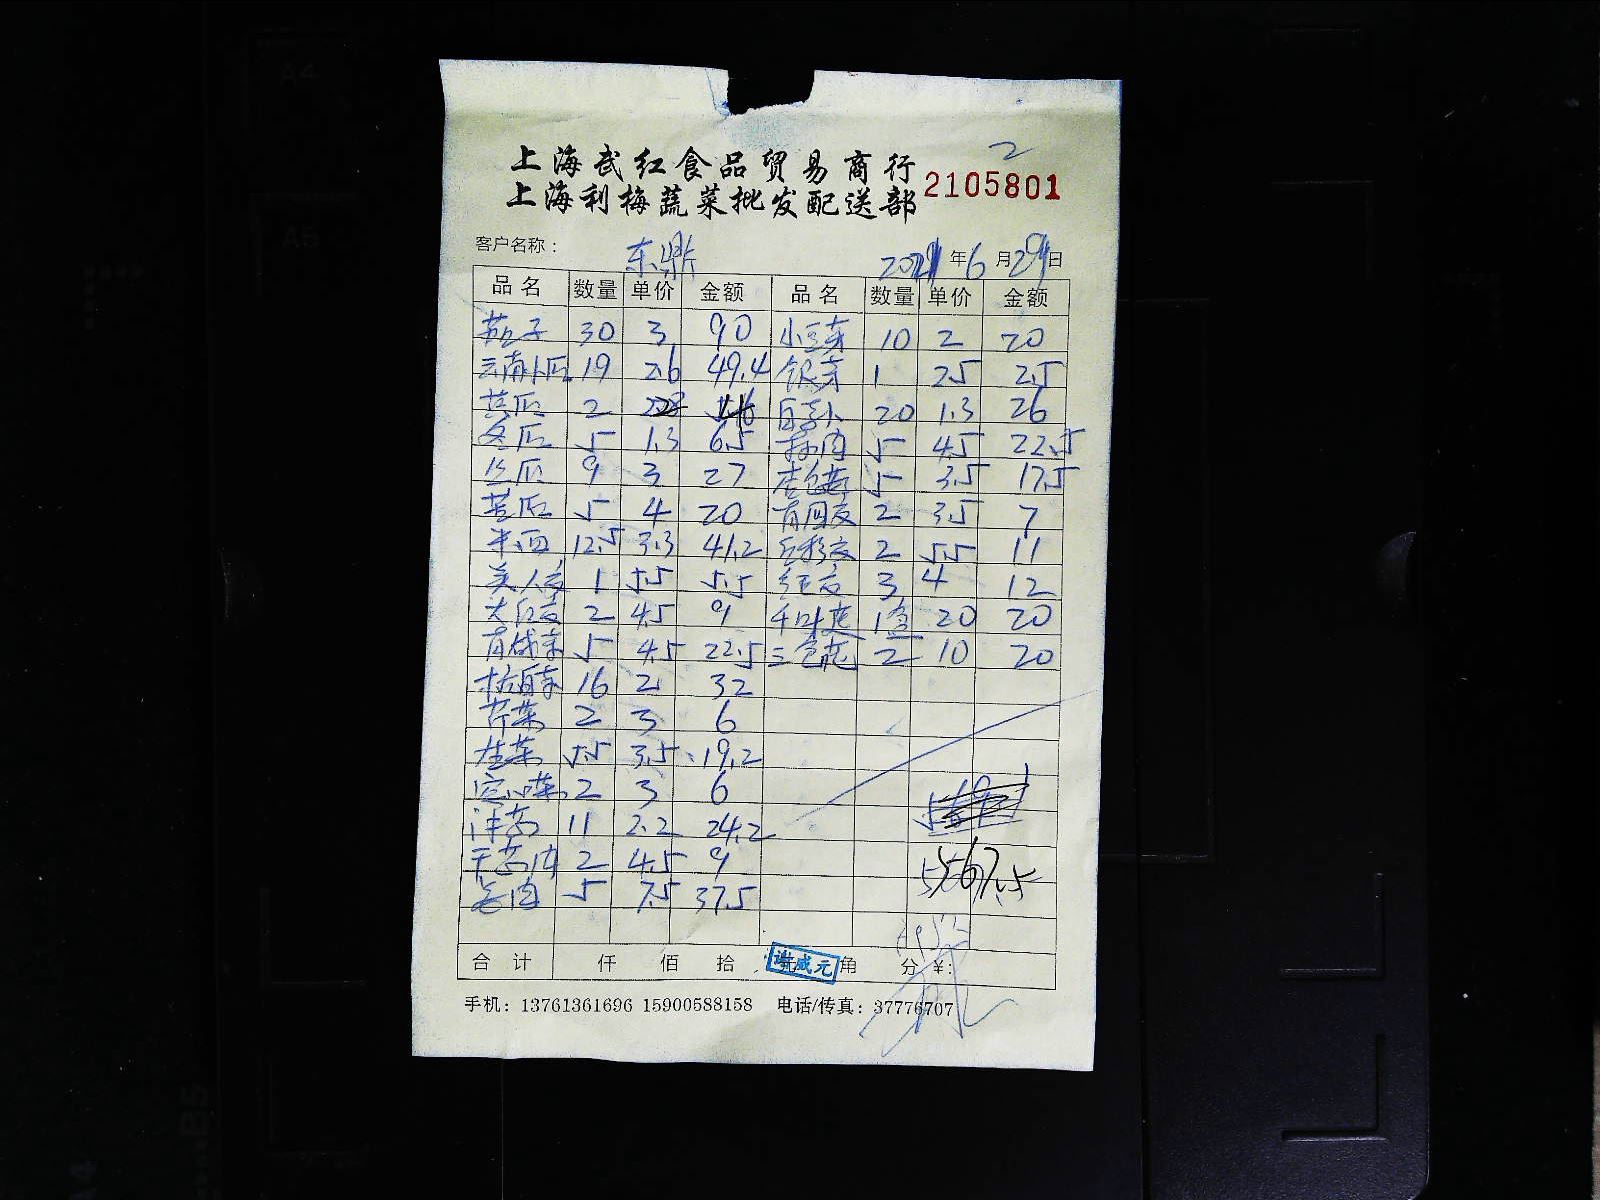 2
上海武红食品贸易商行
上海利梅蔬菜批发配送部
2105801
客户名称： 东鼎 2021年6月29日
品名 数量 单价 金额 品名 数量 单价 金额
茄子 30 3 90 小豆芽 10 2 20
云南小瓜 19 2.6 49.4 银芽 1 2.5 2.5
黄瓜 2 白萝卜 20 1.3 26
冬瓜 5 1.3 6.5 5 4.5 22.5
丝瓜 9 3 27 5 3.5 17.5
苦瓜 5 4 20 2 3.5 7
12.5 3.3 41.2 2 5.5 11
美人椒 1 5.5 5.5 红椒 3 4 12
大红椒 2 4.5 9 1盒 20 20
5 4.5 22.5 三色 2 10 20
杭白菜 16 2 32
芹菜 2 3 6
生菜 5.5 3.5 19.2
空心菜 2 3 6
洋葱 11 2.2 24.2
2 4.5 9
5 7.5 37.5
567.5
合计 仟 佰 拾 元 角 分 ¥:
谢咸元
手机：13761361696 15900588158 电话/传真：37776707